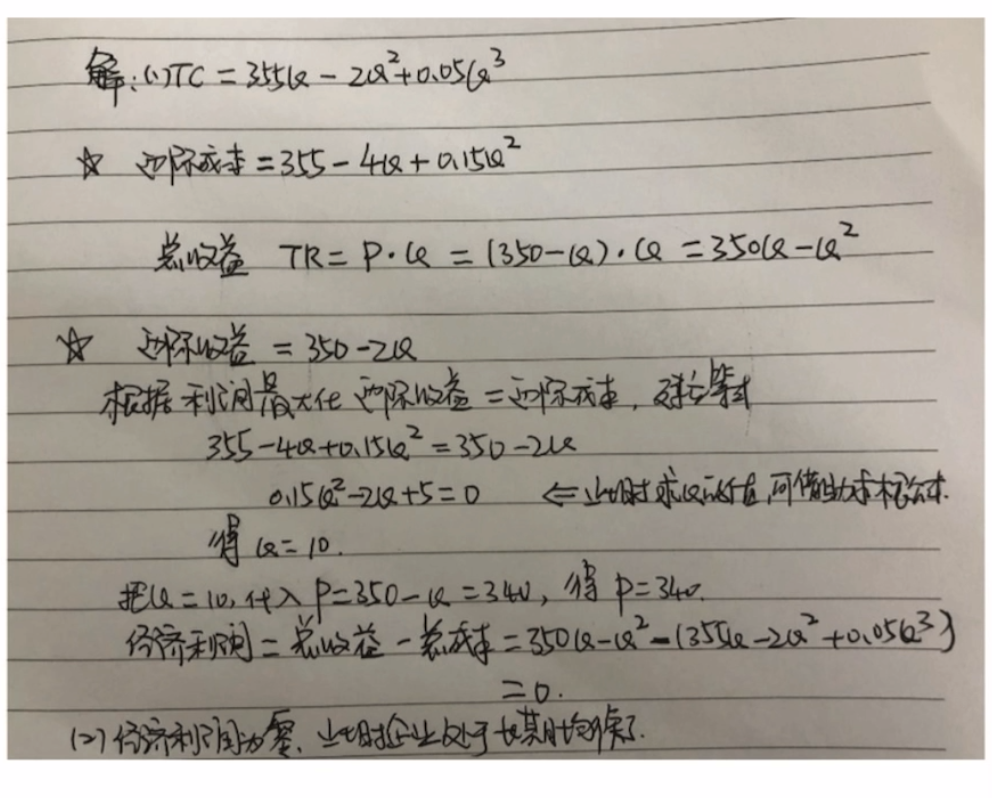 解:(1)TC=355Q-2Q²+0.05Q³
☆ 边际成本=355-4Q+0.15Q²
总收益 TR=P·Q=(350-Q)·Q=350Q-Q²
☆ 边际收益=350-2Q
根据利润最大化边际收益=边际成本,建立等式
355-4Q+0.15Q²=350-2Q
0.15Q²-2Q+5=0 ⇐此时求Q的价值,可借助求根公式.
得Q=10.
把Q=10,代入P=350-Q=340,得P=340.
经济利润=总收益-总成本=350Q-Q²-(355Q-2Q²+0.05Q³)
=0.
(2)经济利润为零,此时企业处于长期均衡.